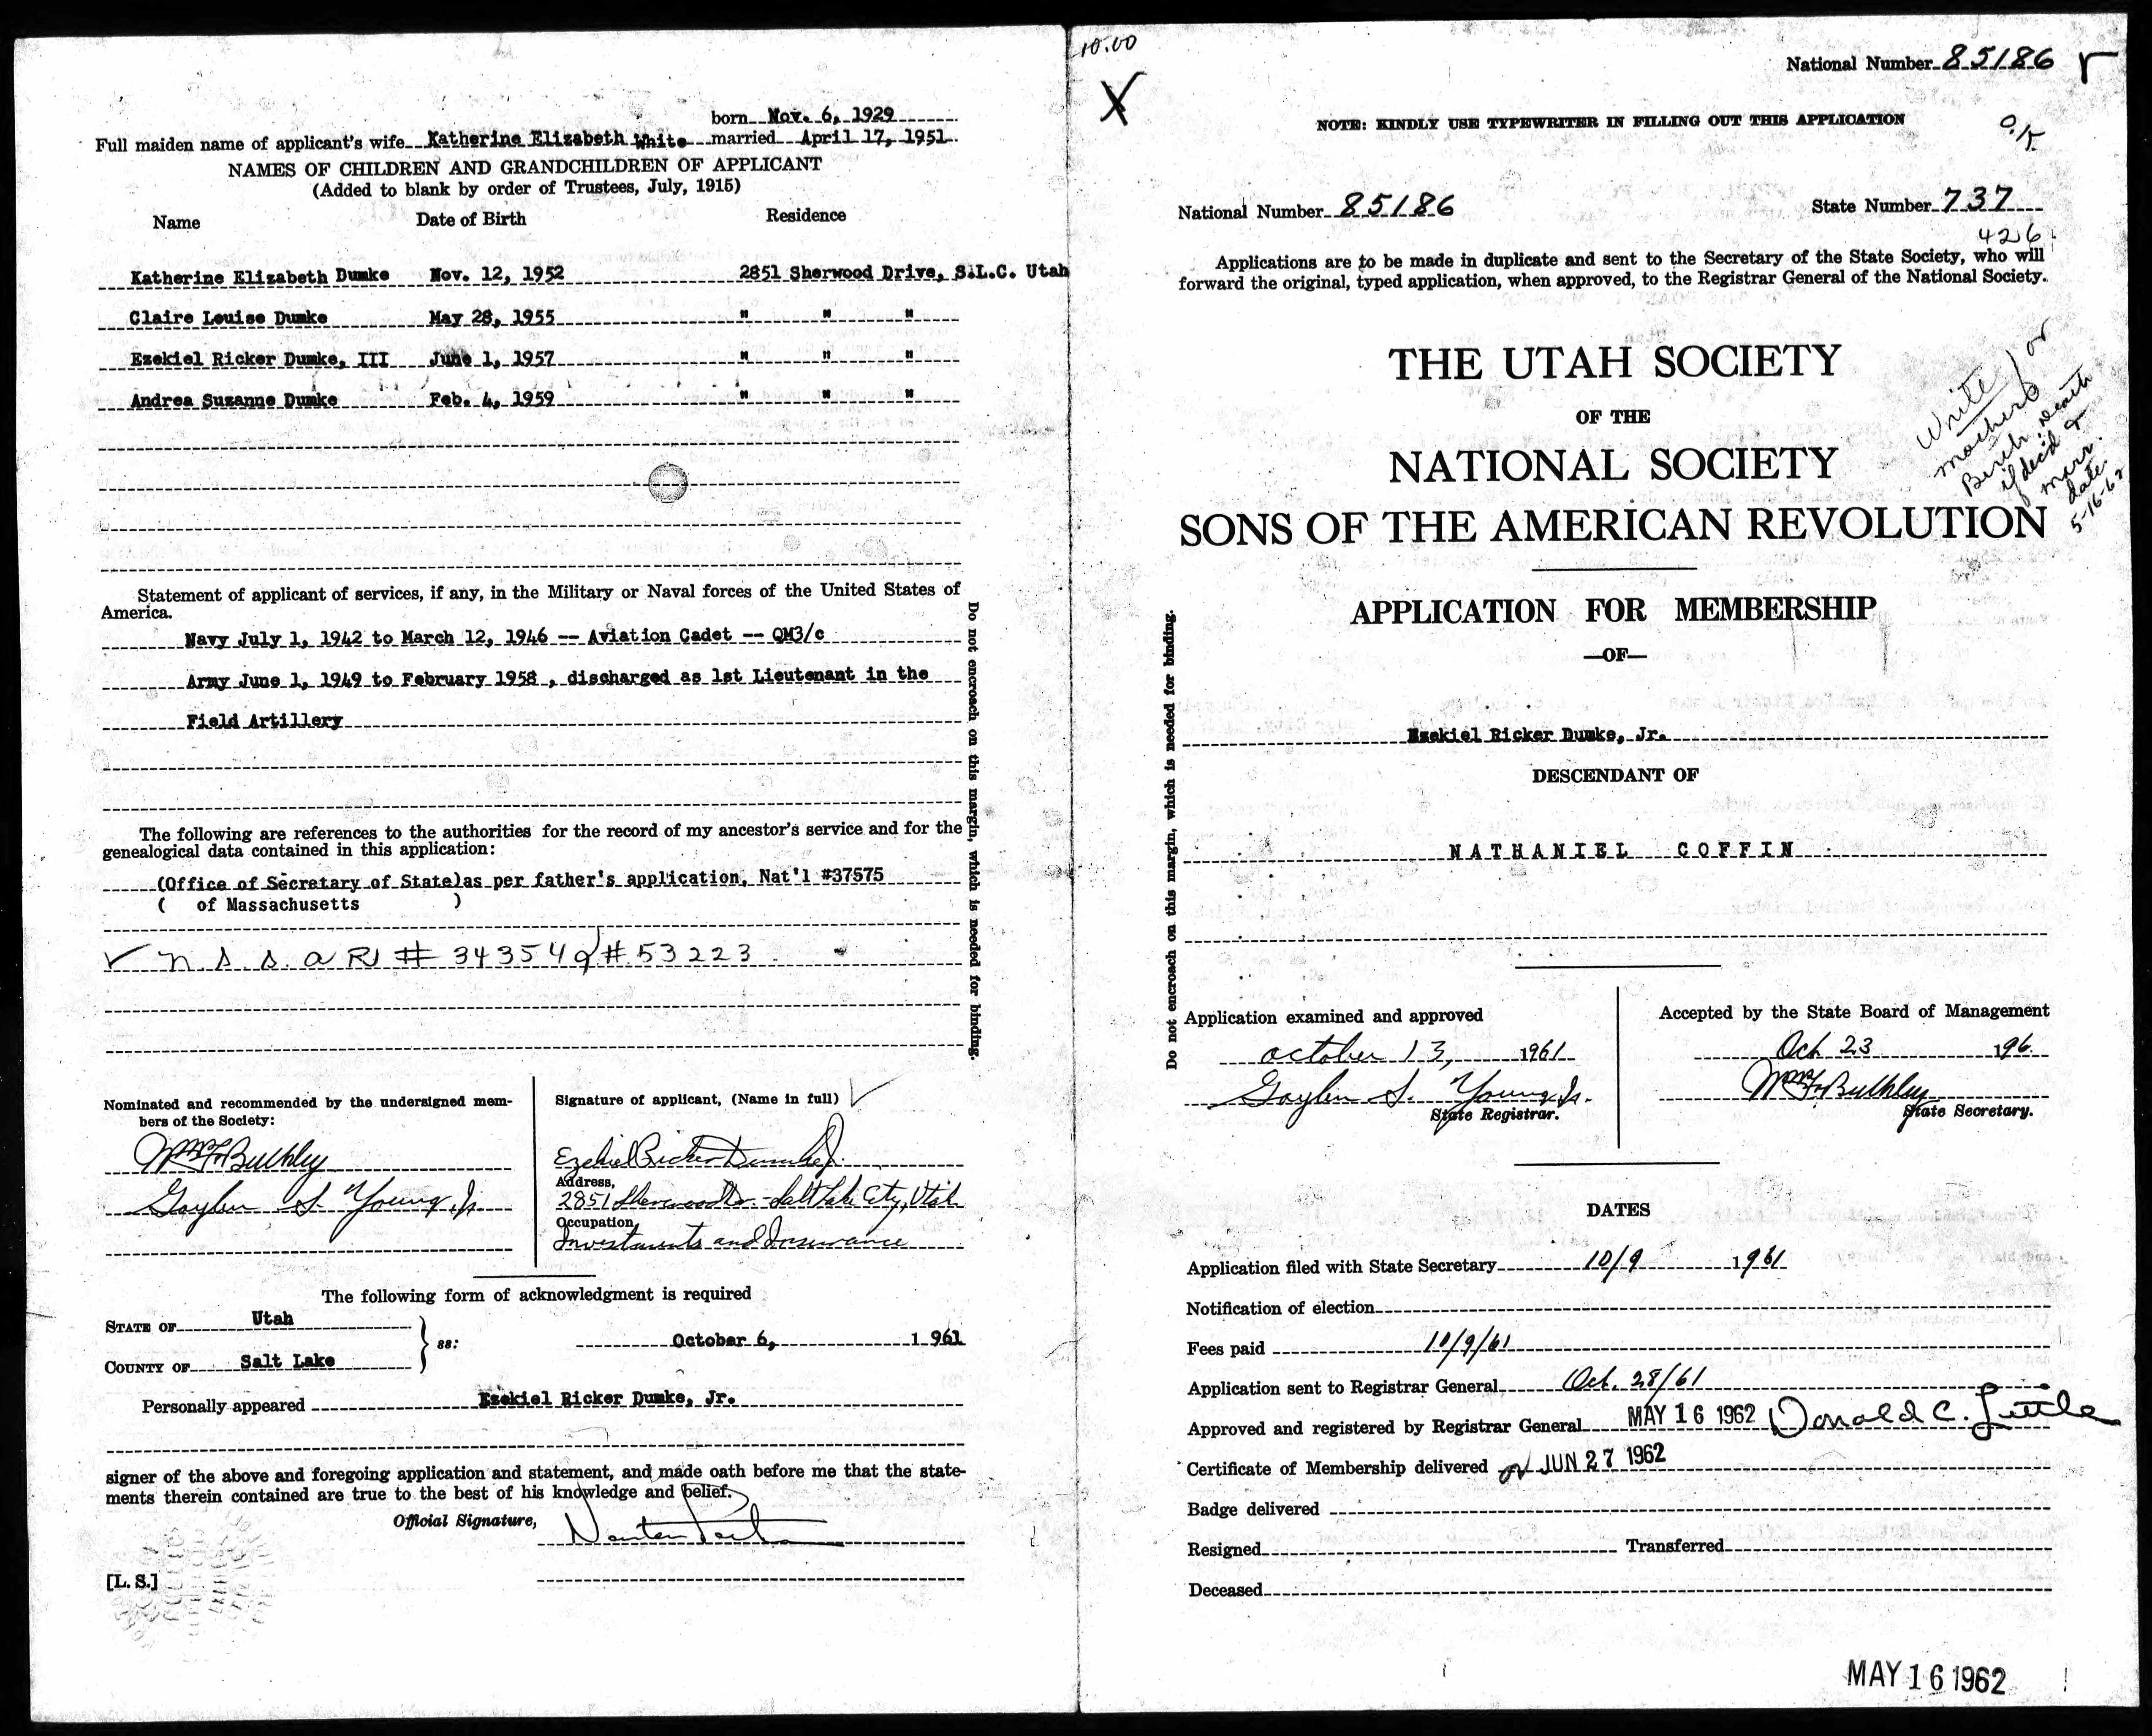 born Nov. 6, 1929
Full maiden name of applicant's wife Katherine Elizabeth White married April 17, 1951
NAMES OF CHILDREN AND GRANDCHILDREN OF APPLICANT
(Added to blank by order of Trustees, July, 1915)
Name Date of Birth Residence
Katherine Elizabeth Dumke Nov. 12, 1952 2851 Sherwood Drive, S.L.C. Utah
Claire Louise Dumke May 28, 1955 " " "
Ezekiel Ricker Dumke, III June 1, 1957 " " "
Andrea Suzanne Dumke Feb. 4, 1959 " " "
Statement of applicant of services, if any, in the Military or Naval forces of the United States of
America.
Navy July 1, 1942 to March 12, 1946 -- Aviation Cadet -- QM3/c
Army June 1, 1949 to February 1958 , discharged as 1st Lieutenant in the
Field Artillery
The following are references to the authorities for the record of my ancestor's service and for the
genealogical data contained in this application:
(Office of Secretary of State)as per father's application, Nat'l #37575
( of Massachusetts )
✓ n. s. s. a R # 34354 & # 53223
Do not encroach on this margin, which is needed for binding.
Nominated and recommended by the undersigned mem-
bers of the Society:
Wm F Bulkley
Gaylen S. Young, Jr.
Signature of applicant, (Name in full) ✓
Ezekiel Ricker Dumke Jr.
Address,
2851 Sherwood Dr. - Salt Lake City, Utah
Occupation,
Investments and Insurance
The following form of acknowledgment is required
STATE OF Utah
COUNTY OF Salt Lake
ss: October 6, 1961
Personally appeared Ezekiel Ricker Dumke, Jr.
signer of the above and foregoing application and statement, and made oath before me that the state-
ments therein contained are true to the best of his knowledge and belief.
Official Signature,
[L. S.]
10.00
X
National Number 85186
NOTE: KINDLY USE TYPEWRITER IN FILLING OUT THIS APPLICATION
O.K.
National Number 85186 State Number 737
426
Applications are to be made in duplicate and sent to the Secretary of the State Society, who will
forward the original, typed application, when approved, to the Registrar General of the National Society.
THE UTAH SOCIETY
OF THE
NATIONAL SOCIETY
SONS OF THE AMERICAN REVOLUTION
Write for
mother's
Birth, death
if dec'd &
marr.
date.
5-16-62
APPLICATION FOR MEMBERSHIP
—OF—
Ezekiel Ricker Dumke, Jr.
DESCENDANT OF
NATHANIEL COFFIN
Do not encroach on this margin, which is needed for binding.
Application examined and approved
October 13, 1961
Gaylen S. Young, Jr.
State Registrar.
Accepted by the State Board of Management
Oct 23 196
Wm F Bulkley
State Secretary.
DATES
Application filed with State Secretary 10/9 1961
Notification of election
Fees paid 10/9/61
Application sent to Registrar General Oct. 28/61
Approved and registered by Registrar General MAY 16 1962 Donald C. Little
Certificate of Membership delivered JUN 27 1962
Badge delivered
Resigned Transferred
Deceased
MAY 16 1962